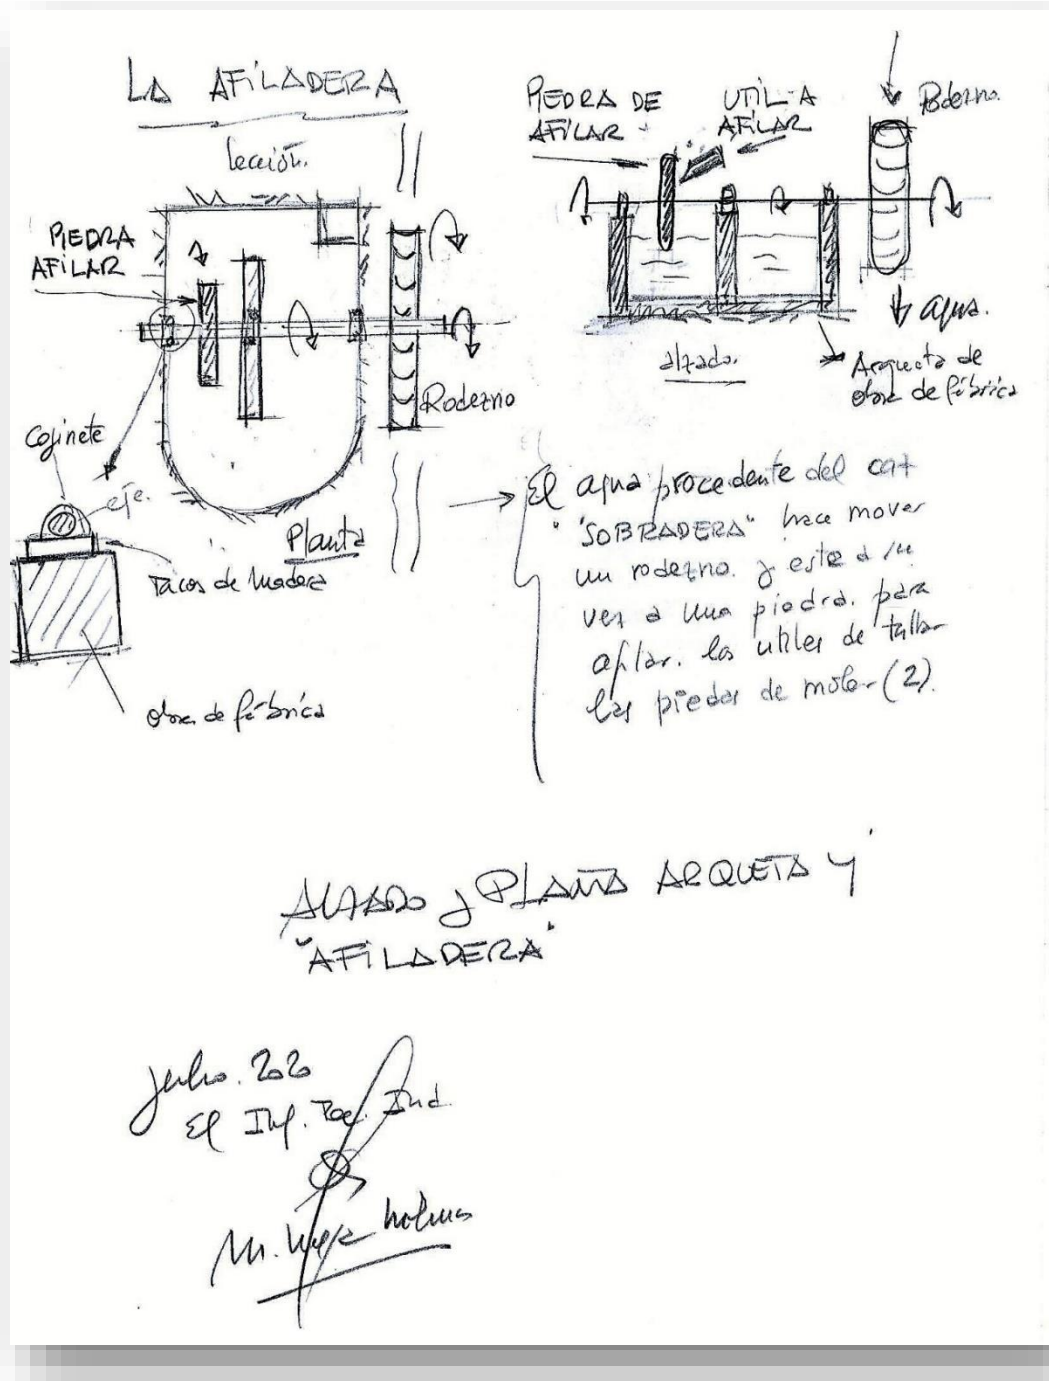 LA AFILADERA
Sección.
PIEDRA
AFILAR
Rodezno
Cojinete
eje.
Planta
Tacos de madera
obra de fábrica
PIEDRA DE
AFILAR
UTIL A
AFILAR
Rodezno.
agua.
alzado.
Arqueta de
obra de fábrica
El agua procedente del
"SOBRADERA" hace mover
un rodezno y este a su
vez a una piedra para
afilar los utiles de tallar
las piedras de moler (2).
ALZADO y PLANTA ARQUETA Y
"AFILADERA"
julio. 22
El Ing. Tec. Ind.
M.